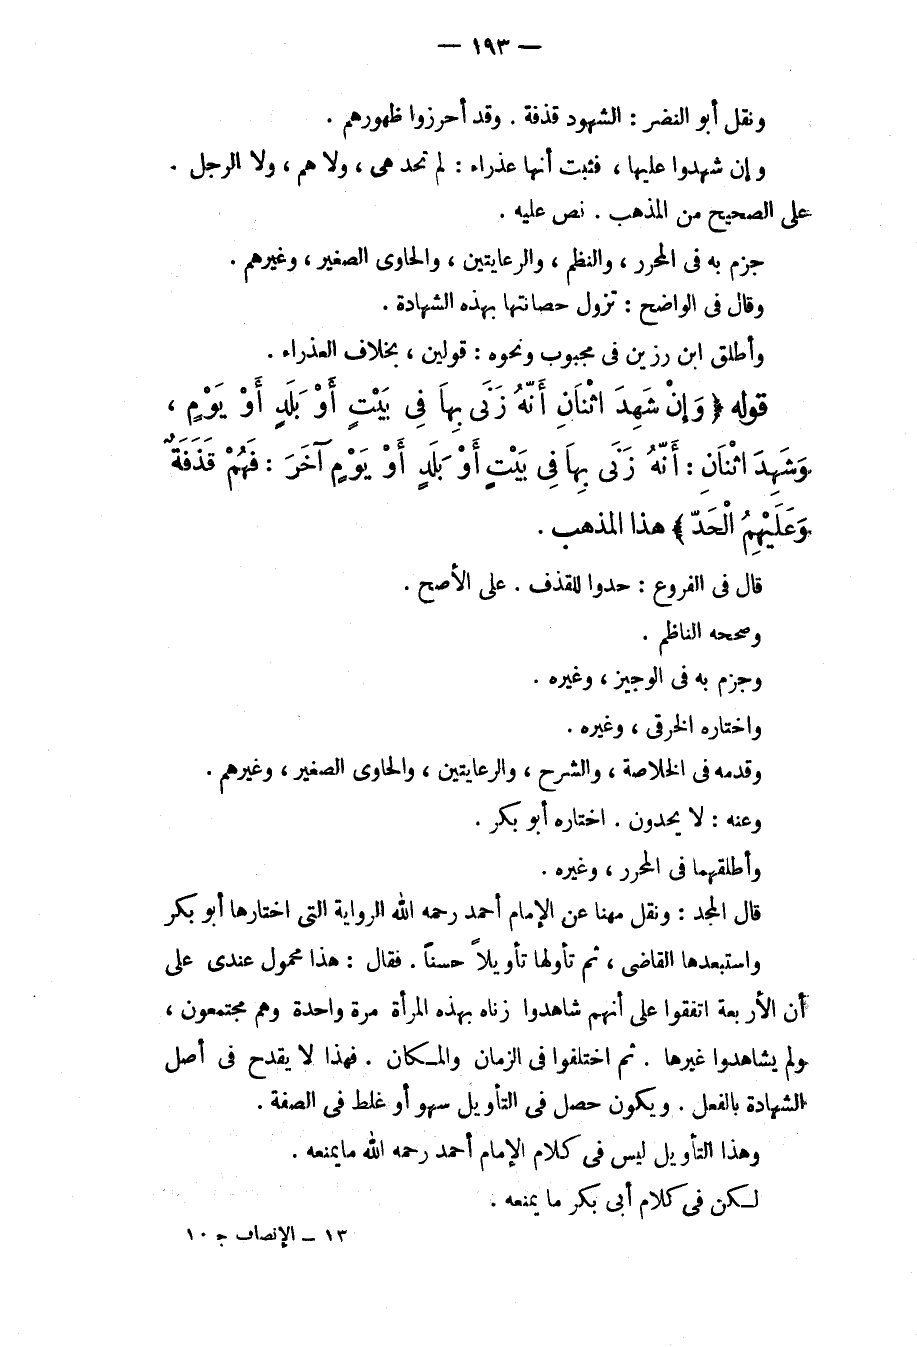 — ١٩٣ —
ونقل أبو النضر : الشهود قذفة . وقد أحرزوا ظهورهم .
وإن شهدوا عليها ، فثبت أنها عذراء : لم تحد هى ، ولا هم ، ولا الرجل .
على الصحيح من المذهب . نص عليه .
جزم به فى المحرر ، والنظم ، والرعايتين ، والحاوى الصغير ، وغيرهم .
وقال فى الواضح : تزول حصانتها بهذه الشهادة .
وأطلق ابن رزين فى مجبوب ونحوه : قولين ، بخلاف العذراء .
قوله ﴿ وَإِنْ شَهِدَ اثْنَانِ أَنَّهُ زَنَى بِهَا فِى بَيْتٍ أَوْ بَلَدٍ أَوْ يَوْمٍ ،
وَشَهِدَ اثْنَانِ : أَنَّهُ زَنَى بِهَا فِى بَيْتٍ أَوْ بَلَدٍ أَوْ يَوْمٍ آخَرَ : فَهُمْ قَذَفَةٌ
وَعَلَيْهِمُ الْحَدّ ﴾ هذا المذهب .
قال فى الفروع : حدوا للقذف . على الأصح .
وصححه الناظم .
وجزم به فى الوجيز ، وغيره .
واختاره الخرقى ، وغيره .
وقدمه فى الخلاصة ، والشرح ، والرعايتين ، والحاوى الصغير ، وغيرهم .
وعنه : لا يحدون . اختاره أبو بكر .
وأطلقهما فى المحرر ، وغيره .
قال المجد : ونقل مهنا عن الإمام أحمد رحمه الله الرواية التى اختارها أبو بكر
واستبعدها القاضى ، ثم تأولها تأويلاً حسناً . فقال : هذا محمول عندى على
أن الأربعة اتفقوا على أنهم شاهدوا زناه بهذه المرأة مرة واحدة وهم مجتمعون ،
ولم يشاهدوا غيرها . ثم اختلفوا فى الزمان والمـكان . فهذا لا يقدح فى أصل
الشهادة بالفعل . ويكون حصل فى التأويل سهو أو غلط فى الصفة .
وهذا التأويل ليس فى كلام الإمام أحمد رحمه الله مايمنعه .
لـكن فى كلام أبى بكر ما يمنعه .
١٣ – الإنصاف ج ١٠